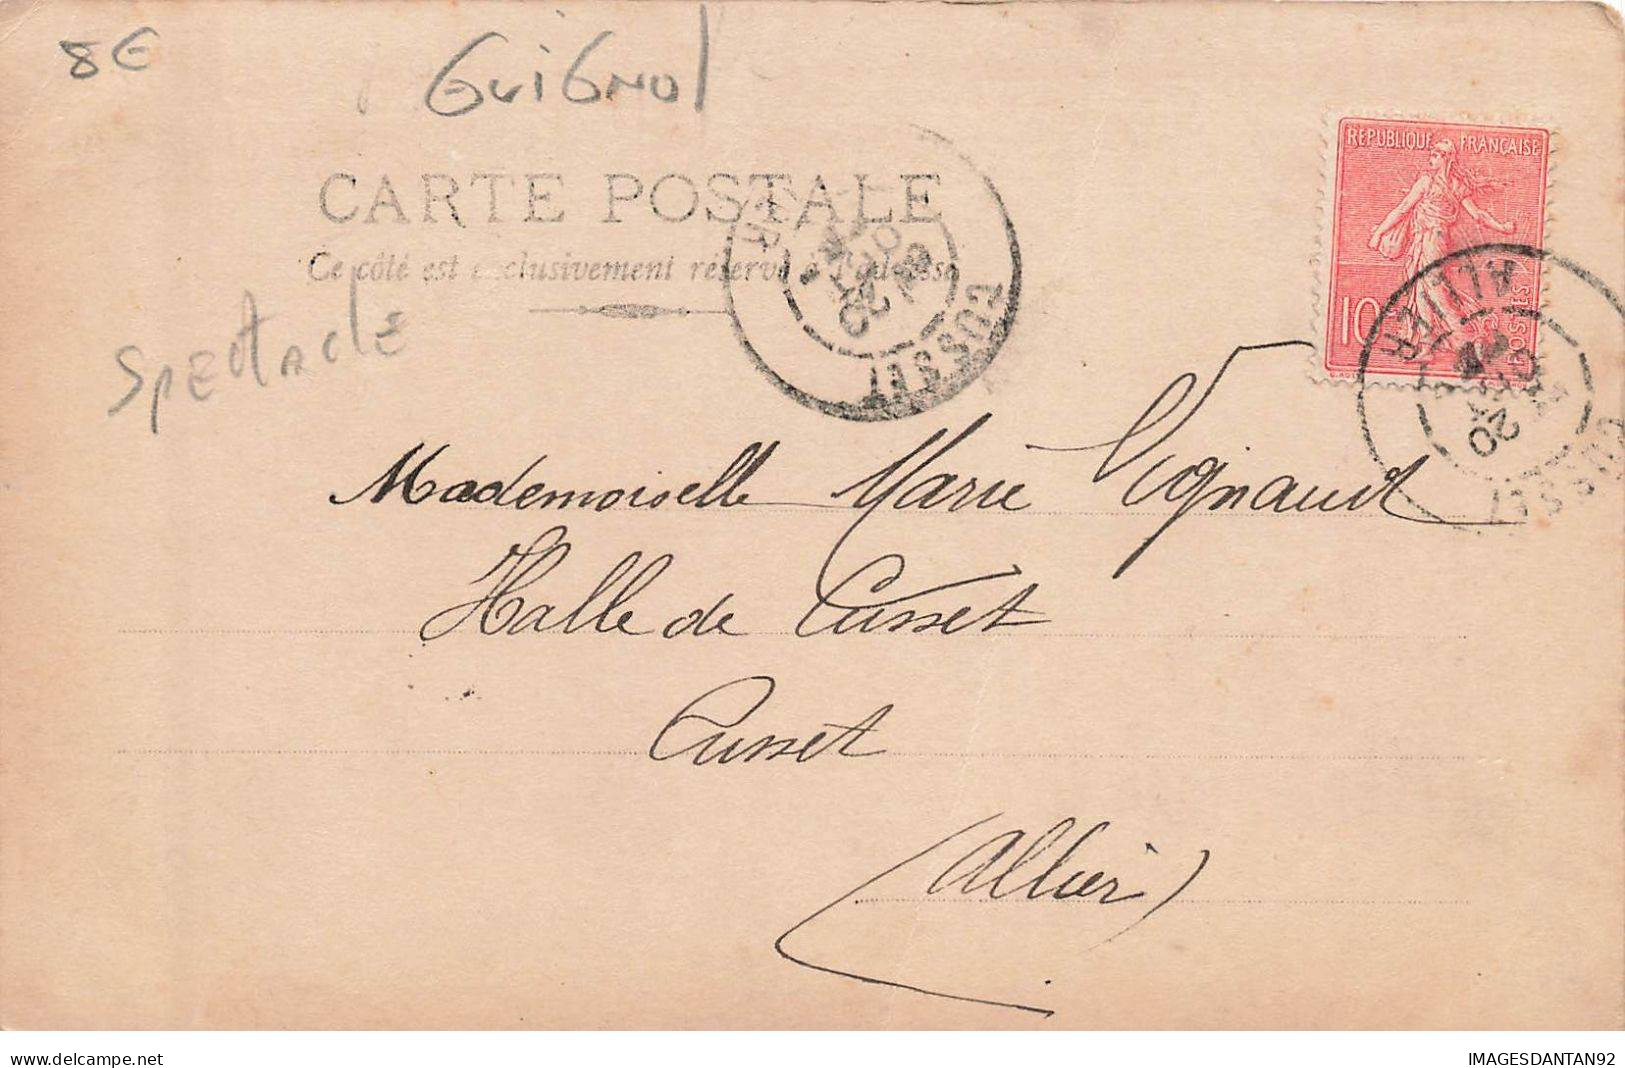 8€
GuiGnol
RÉPUBLIQUE FRANÇAISE
10
POSTES
CARTE POSTALE
Ce côté est exclusivement réservé à l'adresse
SpEctAclE
CUSSET
ALLIER
20
CUSSET
Mademoiselle Marie Vignaud
Halle de Cusset
Cusset
(Allier)
IMAGESDANTAN92